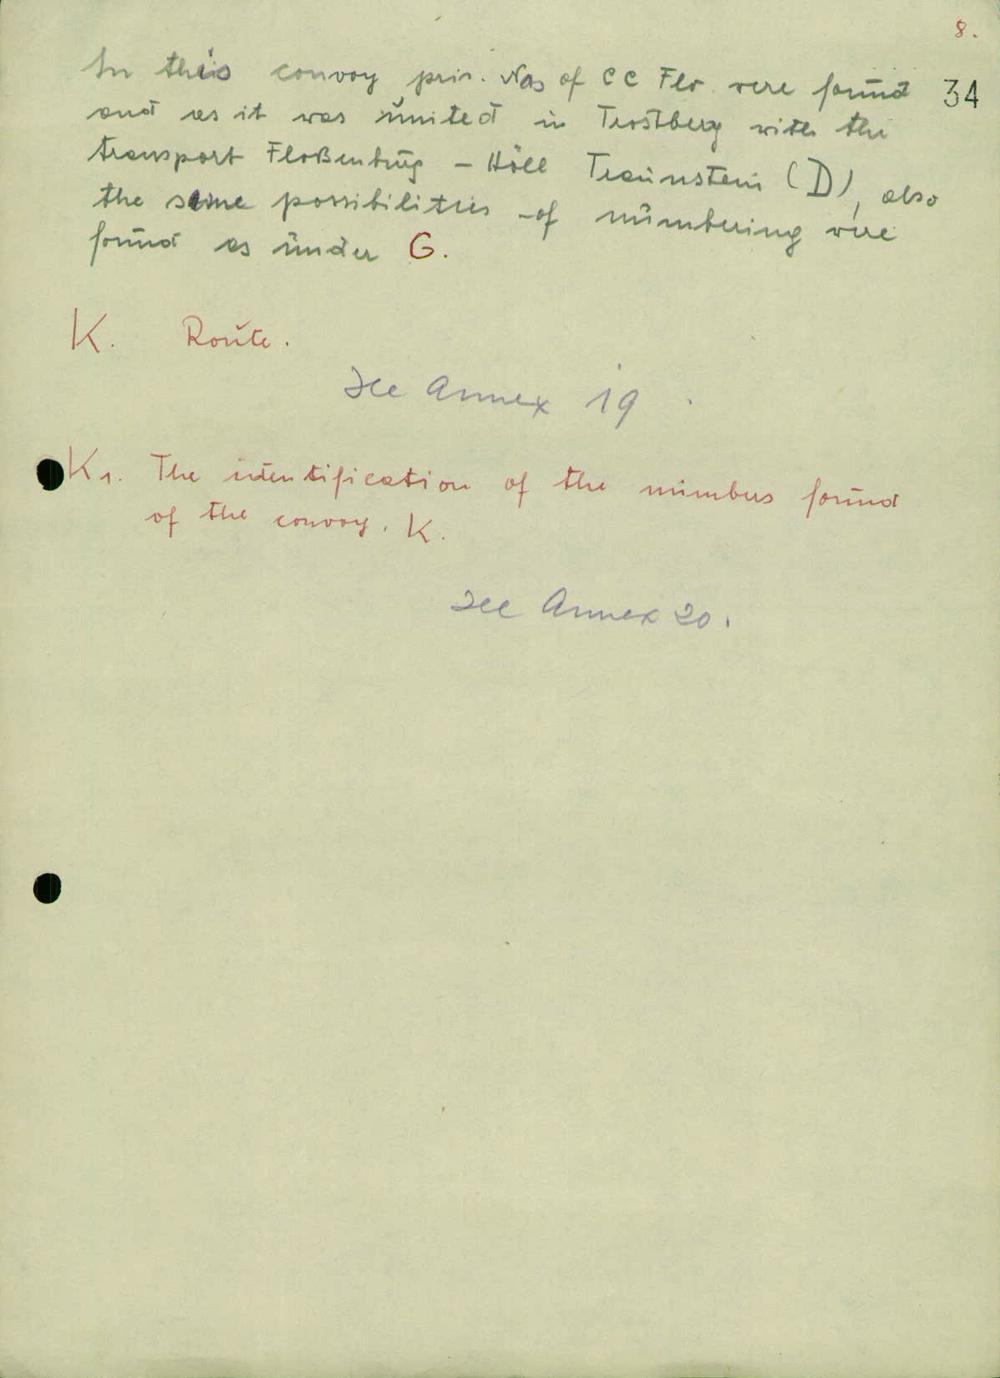 8.
34
In this convoy pris. Nos of CC Flo were found
and as it was united in Trostberg with the
transport Floßenbürg – Höll Traunstein (D), also
the same possibilities of numbering were
found as under G.
K. Route.
See Annex 19.
K1. The identification of the numbers found
of the convoy. K.
See Annex 20.